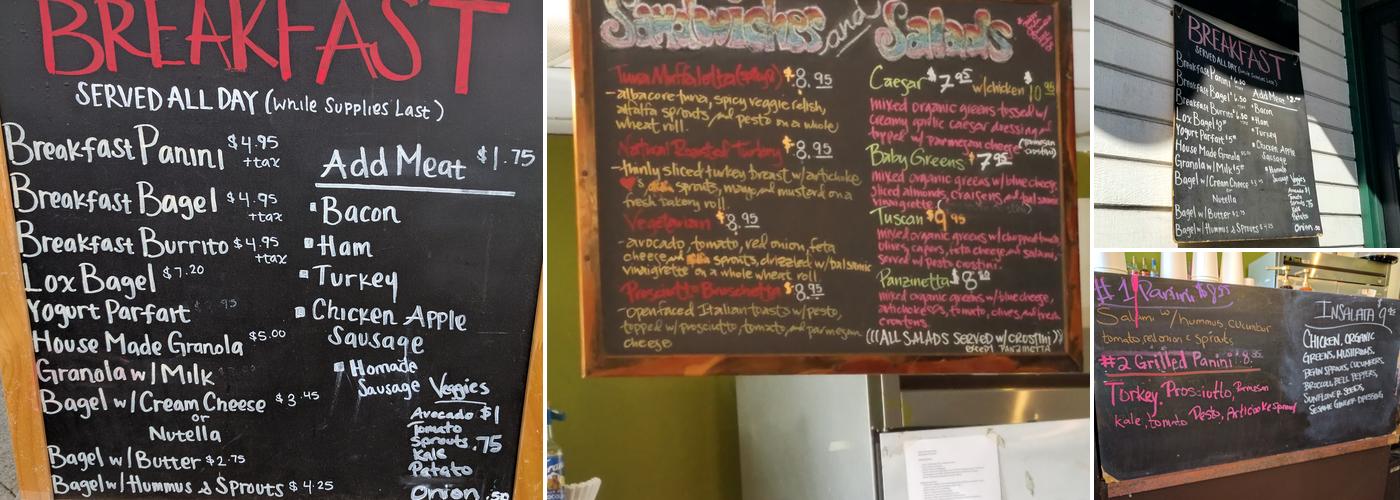 BREAKFAST
SERVED ALL DAY (While Supplies Last)
Breakfast Panini $4.95
+tax
Breakfast Bagel $4.95
+tax
Breakfast Burrito $4.95
+tax
Lox Bagel $7.20
Yogurt Parfart
House Made Granola $5.00
Granola w/Milk
Bagel w/Cream Cheese $3.45
or
Nutella
Bagel w/Butter $2.75
Bagel w/Hummus & Sprouts $4.25
Add Meat $1.75
Bacon
Ham
Turkey
Chicken Apple
Sausage
Homade
Sausage
Veggies
Avocado $1
Tomato
Sprouts .75
Kale
Potato
Onion .50
Sandwiches and Salads
Tuna Muffaletta (spicy) $8.95
-albacore tuna, spicy veggie relish,
alfalfa sprouts and pesto on a whole
wheat roll.
Natural Roasted Turkey $8.95
-thinly sliced turkey breast w/artichoke
♥'s sprouts, mayo, and mustard on a
fresh bakery roll.
Vegetarian $8.95
-avocado, tomato, red onion, feta
cheese and sprouts, drizzled w/balsamic
vinaigrette on a whole wheat roll
Prosciutto Bruschetta $8.95
-openfaced Italian toasts w/pesto,
topped w/prosciutto, tomato, and parmesan
cheese
Caesar $7.95 w/chicken $10.95
mixed organic greens tossed w/
creamy garlic caesar dressing and
topped w/parmesan cheese (parmesan
crostini)
Baby Greens $7.95
mixed organic greens w/blue cheese,
sliced almonds, craisins, and balsamic
vinaigrette
Tuscan $9.95
mixed organic greens w/chopped tomato,
olives, capers, feta cheese and salami,
served w/pesto crostini.
Panzinetta $8
mixed organic greens, w/blue cheese,
artichokes, tomato, olives, and fresh
croutons.
(((ALL SALADS SERVED w/CROSTINI))
EXCEPT PANZINETTA
BREAKFAST
SERVED ALL DAY
Breakfast Panini
Breakfast Bagel
Breakfast Burrito
Lox Bagel
Yogurt Parfait
House Made Granola
Granola w/Milk
Bagel w/Cream Cheese
or
Nutella
Bagel w/Butter $2.75
Bagel w/Hummus & Sprouts $4.25
Add Meat
Bacon
Ham
Turkey
Chicken Apple
Sausage
Homade
Sausage
Veggies
Avocado $1
Tomato
Sprouts .75
Kale
Potato
Onion .50
#1 Panini $8.95
Salami w/hummus, cucumber
tomato, red onion & sprouts
#2 Grilled Panini $8.95
Torkey, Prosciutto, Parmesan
kale, tomato Pesto, Articoke spread
INSALATA 9.95
CHICKEN, ORGANIC
GREENS, MUSHROOMS,
BEAN SPROUTS, CUCUMBERS,
BROCCOLI, BELL PEPPERS,
SUNFLOWER SEEDS,
SESAME GINGER DRESSING